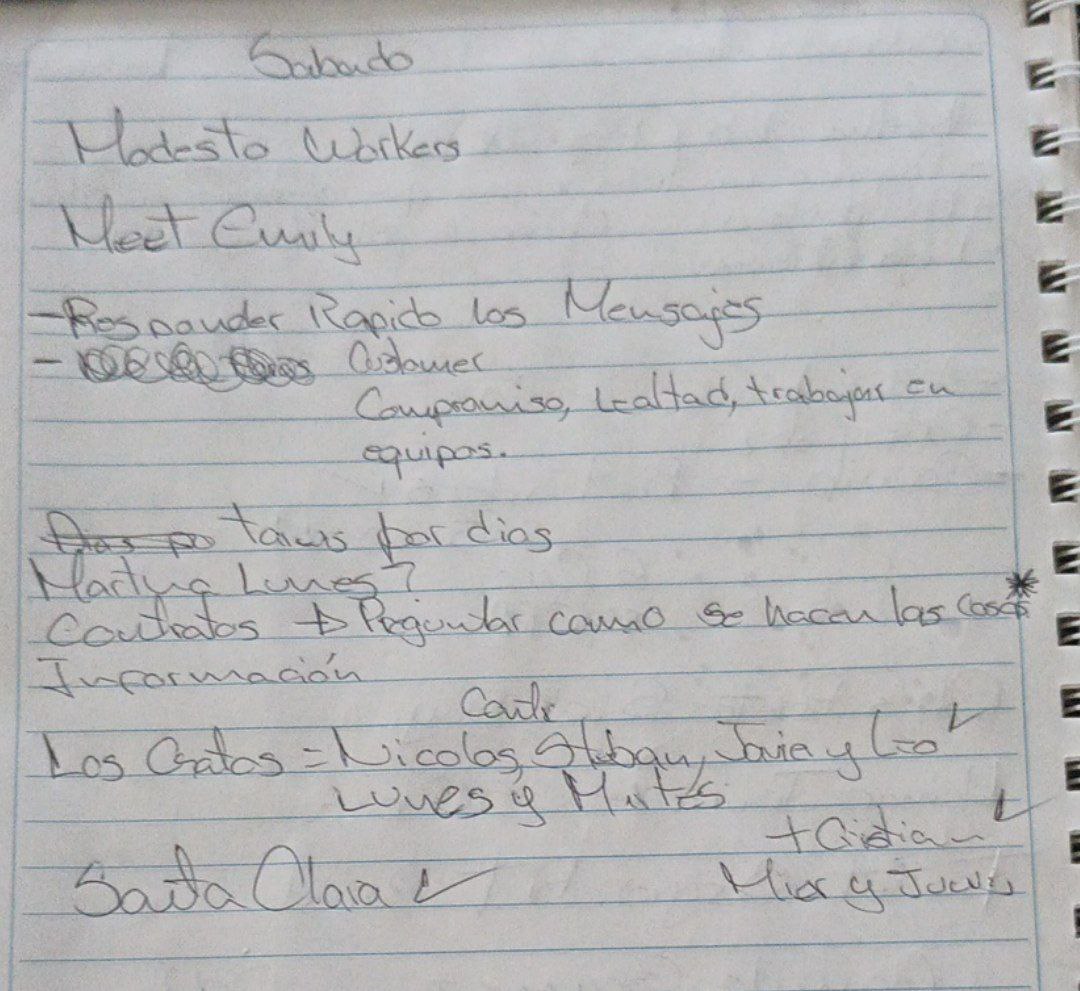 Sabado
Modesto Workers
Meet Emily
- Responder Rapido los Mensajes
- Customer
Compromiso, Lealtad, trabajar en
equipos.
por dias
Lunes?
Contratos → Preguntar como se hacen las cosas *
Información
Contr
Los Gatos = Nicolas, Steban, Javie y Leo ✓
Lunes y Martes
+ Cristian ✓
Santa Clara ✓ Mier y Jueves